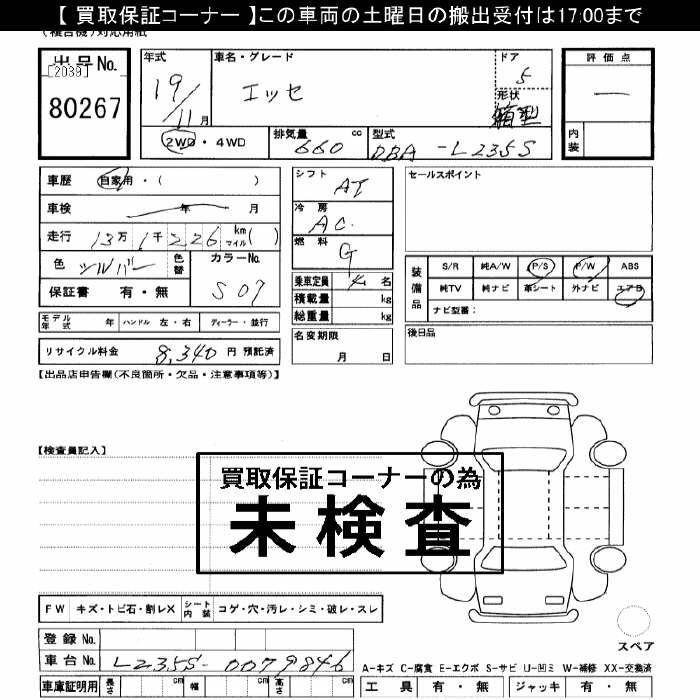 【 買取保証コーナー 】この車両の土曜日の搬出受付は17:00まで
(複合機)対応用紙
出品No.
[2039]
80267
年式
19/11月
車名・グレード
エッセ
ドア
5
形状
箱型
評価点
―
内装
2WD・4WD
排気量
660 cc
型式
DBA -L235S
車歴 自家用・( )
車検 年 月
走行 13万1千226 km マイル( )
色 シルバー 色替 カラーNo. S07
保証書 有・無
シフト AT
冷房 AC.
燃料 G
乗車定員 4 名
積載量 kg
総重量 kg
名変期限
月 日
セールスポイント
装備品
S/R 純A/W P/S P/W ABS
純TV 純ナビ 革シート 外ナビ エアB
ナビ型番:
後日品
モデル年式 年 ハンドル 左・右 ディーラー・並行
リサイクル料金 8,340 円 預託済
【出品店申告欄(不良箇所・欠品・注意事項等)】
【検査員記入】
買取保証コーナーの為
未検査
FW キズ・トビ石・割レX シート内装 コゲ・穴・汚レ・シミ・破レ・スレ
スペア
登録No.
車台No. L235S-0079846
A-キズ C-腐食 E-エクボ S-サビ U-凹ミ W-補修 XX-交換済
車庫証明用 長さ cm 幅 cm 高さ cm
工具 有・無 ジャッキ 有・無